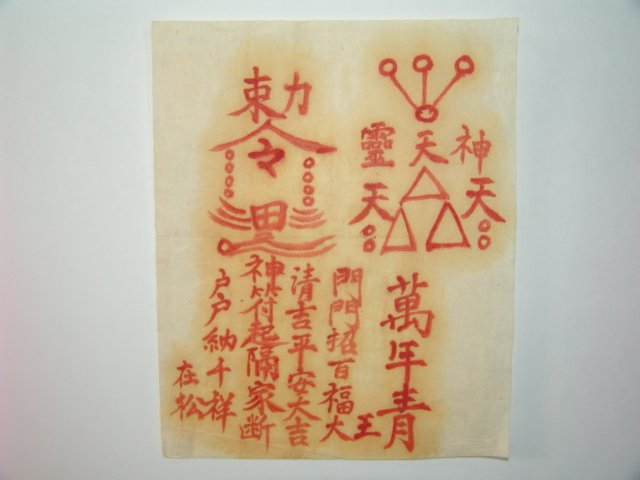 神天靈
天 天
萬年青
王
門門招百福大
清吉平安大吉
神符起隔家断
戶戶納千祥
在松
勅令